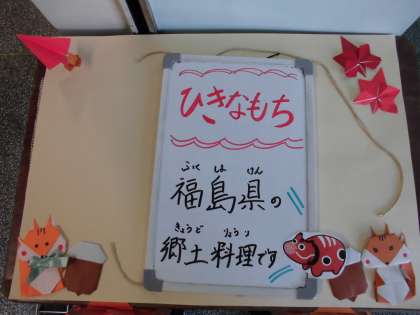 ひきなもち
ふく しま けん
福島県の
きょうど りょうり
郷土料理です